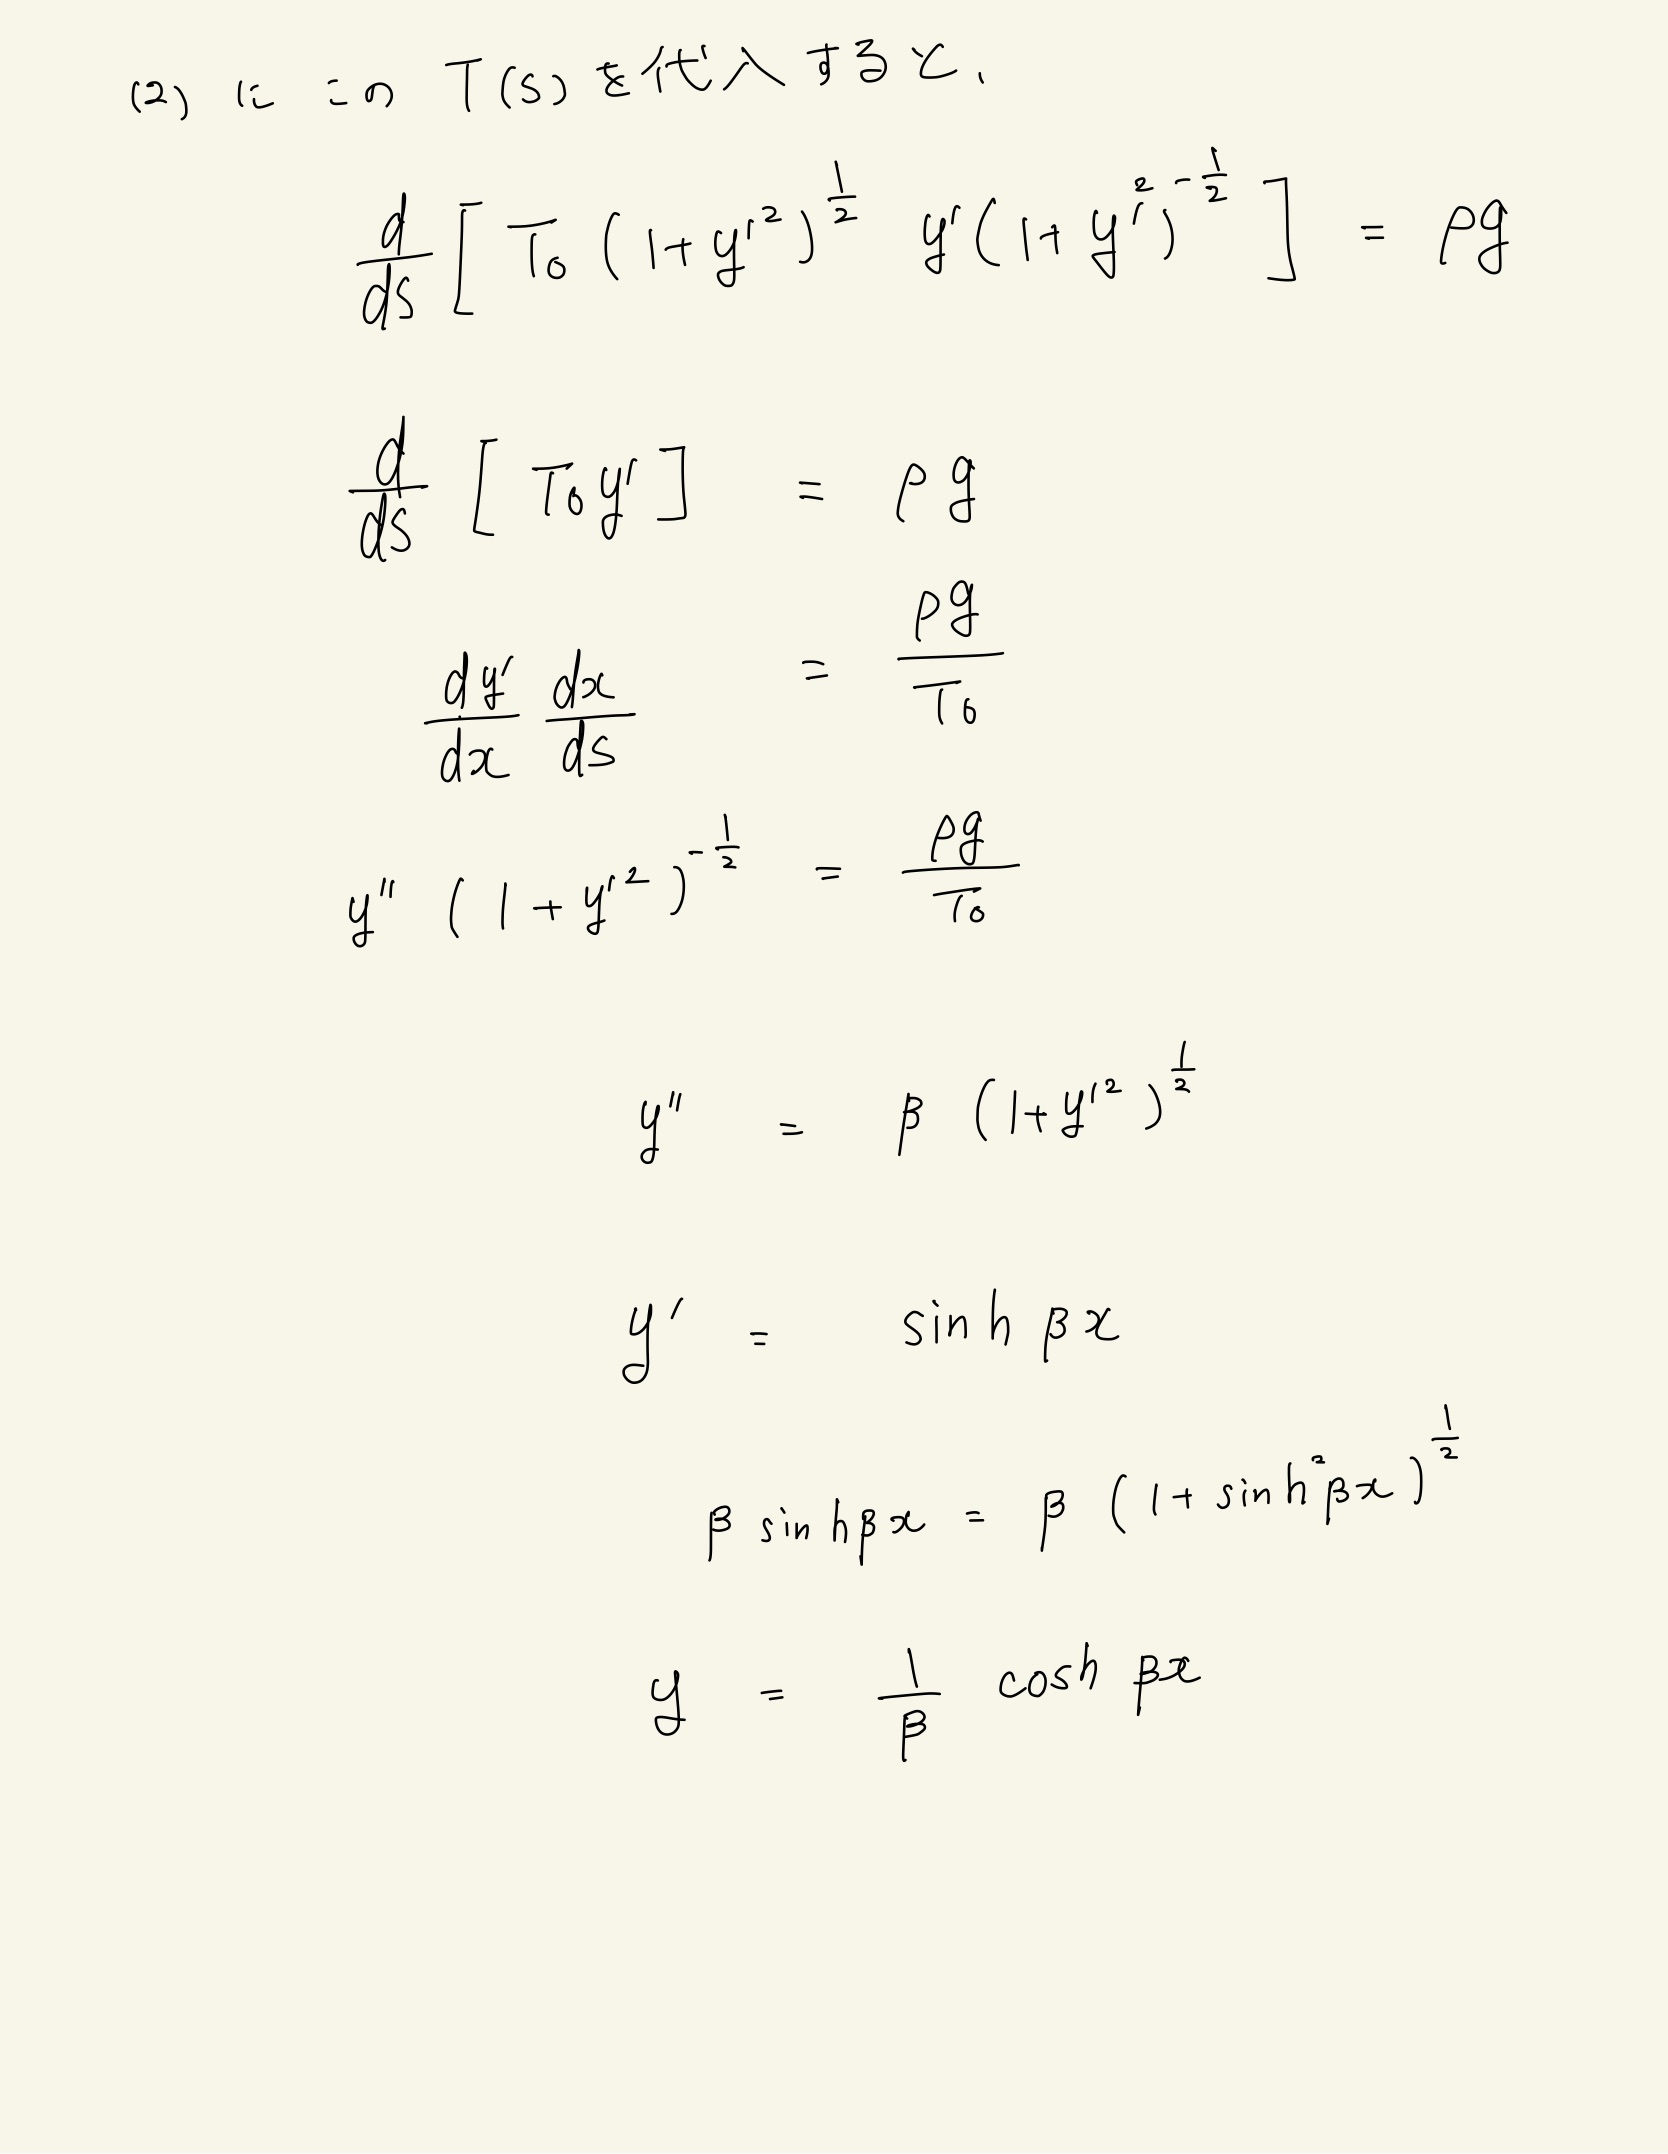 (2) に この T(s) を代入すると、
d/ds [ T₀ (1+y'²)^{1/2} y'(1+y'²)^{-1/2} ] = ρg
d/ds [ T₀y' ] = ρg
dy'/dx dx/ds = ρg/T₀
y'' (1+y'²)^{-1/2} = ρg/T₀
y'' = β (1+y'²)^{1/2}
y' = sinh βx
β sinhβx = β (1+ sinh²βx)^{1/2}
y = 1/β cosh βx